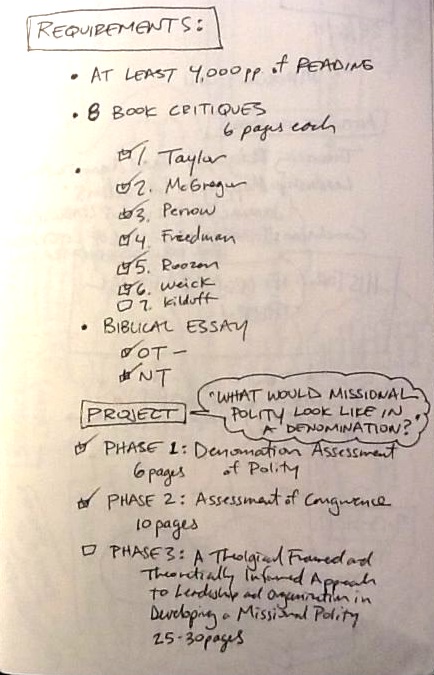 REQUIREMENTS:
• AT LEAST 4,000pp. of READING
• 8 BOOK CRITIQUES
6 pages each
1. Taylor
2. McGregor
3. Perrow
4. Freedman
5. Roozen
6. Weick
7. Kilduff
• BIBLICAL ESSAY
OT –
NT
PROJECT
"WHAT WOULD MISSIONAL
POLITY LOOK LIKE IN
A DENOMINATION?"
PHASE 1: Denomation Assessment
6 pages of Polity
PHASE 2: Assessment of Congruence
10 pages
PHASE 3: A Theolgical Framed and
Theoretially Informed Approach
to Leadership and Organization in
Developing a Missional Polity
25-30 pages